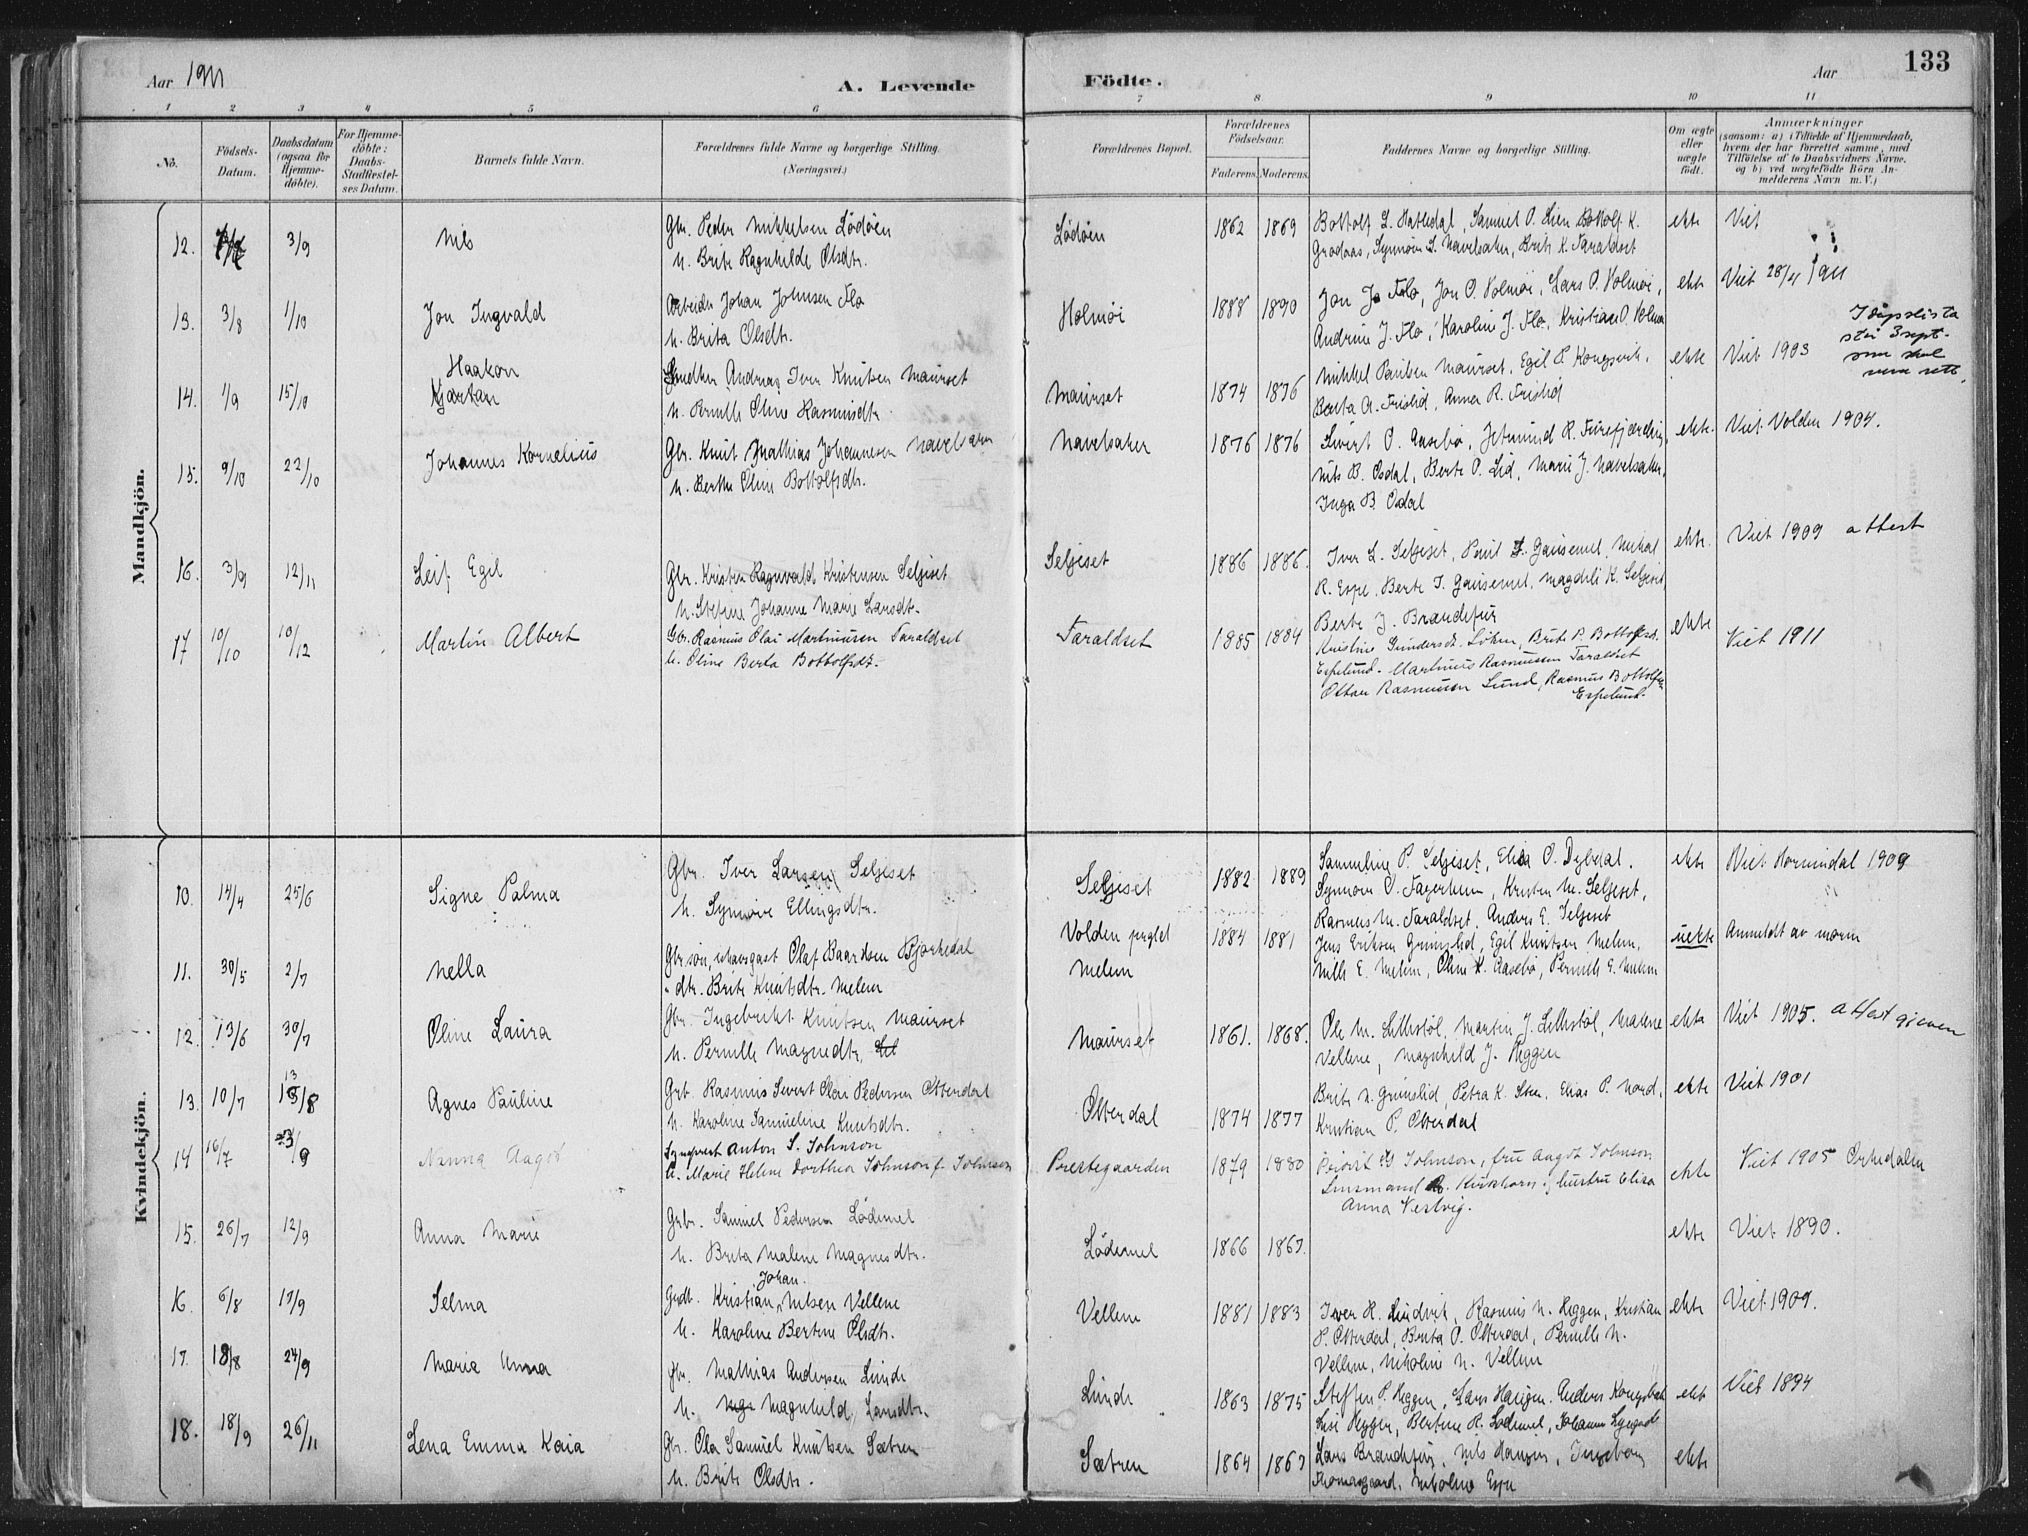 Aar 1911
A. Levende
Födte.
Aar
133
1 2 3 4 5 6 7 8 9 10 11
No.
Födsels-Datum.
Daabsdatum (ogsaa for Hjemme-döbte).
For Hjemme-döbte: Daabs-Stadfæstel-ses Datum.
Barnets fulde Navn.
Forældrenes fulde Navne og borgerlige Stilling.
(Næringsvei.)
Forældrenes Bopæl.
Forældrenes Födselsaar.
Faderens. Moderens.
Faddernes Navne og borgerlige Stilling.
Om ægte eller uægte födt.
Anmærkninger
(saasom: a) i Tilfælde af Hjemmedaab,
hvem der har forrettet samme, med
Tilföielse af to Daabsvidners Navne,
og b) ved uægtefödte Börn An-
melderens Navn m. V.)
Mandkjön.
12. 3/9 Nils
Gbr. Peder Mikkelsen Lødøen
h. Brite Ragnhilde Olsdtr.
Lödöen 1862 1869
Bottolf L. Hatledal, Samuel O. Lien Bottolf K.
Grodaas, Synnøve L. Navelsaker, Brite K. Taraldset
ekte Viet
13. 3/8 1/10 Jon Ingvald
Arbeider Johan Johnsen Flo
h. Brita Olsdtr.
Holmöi 1888 1890
Jon J. Flo, Jon O. Holmöi, Lars O. Holmöi,
Andrine J. Flo, Karoline J. Flo, Kristian O. Holmøi
ekte Viet 28/4 1911
I dåpslista
står 3 sept.
som skal
vera rett.
14. 1/9 15/10 Haakon
Kjartan
Andreas Iver Knutsen Maurset
h. Pernille Oline Rasmusdtr.
Maurset 1874 1876
Mikkel Paulsen Maurset, Egil P. Kongsvik,
Berta A. Frislid, Anna R. Frislid
ekte Viet 1903
15. 9/10 22/10 Johannes Kornelius
Gbr. Knut Mathias Johannesen Navelsaker
h. Berthe Oline Bottolfsdtr.
Navelsaker 1876 1876
Sivert O. Aasebø, Jetmund R. Furefjærding,
Nils B. Osdal, Berte O. Lid, Marie J. Navelsaker,
Inga B. Osdal
ekte. Viet Volden 1904.
16. 3/9 12/11 Leif Egil
Gbr. Kristen Ragnvald Kristensen Seljeset
h. Stefine Johanne Marie Larsdtr.
Seljeset 1886 1886.
Iver L. Seljeset, Paul I. Gausemel, Mikal
R. Espe, Berte I. Gausemel, Magdeli K. Seljeset,
Berte J. Brandefur
ekte. Viet 1909 attest
17 10/10 10/12 Martin Albert
Gbr. Rasmus Olai Martinusen Taraldset
h. Oline Berta Bottolfsdt.
Taraldset 1885 1884
Kristine Gundersdt. Löken, Brite P. Bottolfsd.
Espelund. Martinus Rasmussen Taraldset
Ottar Rasmussen Lund, Rasmus Bottolfsen
Espelund.
ekte Viet 1911
Kvindekjön.
10. 14/4 25/6 Signe Palma
Gbr. Iver Larsen Seljeset
h. Synnöve Ellingsdtr.
Seljeset 1882 1889
Samueline P. Seljeset, Elisa O. Dybdal.
Synnöve O. Fagerheim, Kristen M. Seljeset,
Rasmus M. Taraldset, Anders E. Seljeset
ekte Viet Hornindal 1909
11. 30/5 2/7 Nella
Gbr.søn, Olaf Baardsen Bjørkedal
" dtr. Brite Knutsdtr. Melem
Volden prgld 1884 1881
Melem
Jens Eriksen Grimslid, Egil Knutsen Melem,
Nille E. Melem, Oline K. Aasebø, Pernille E. Melem
uekte Anmeldt av moren
12. 13/6 30/7 Oline Laura
Gbr. Ingebrikt Knutsen Maurset
h. Pernille Magnedtr.
Maurset 1861. 1868.
Ole M. Lethstöl, Martin J. Lethstöl, Makne
Vellene, Magnhild J. Heggen
ekte Viet 1905. attest gieven
13. 10/7 13/8 13 Agnes Pauline
Grb. Rasmus Sivert Olai Pedersen Otterdal
h. Karoline Samueline Knutsdtr.
Otterdal 1874 1877
Brite N. Grimslid, Petra K. Steen, Elias P. Nord,
Kristian P. Otterdal
ekte Viet 1901
14 16/7 3/9 Nanna Aagot
Sogneprest Anton S. Johnson
h. Marie Helene Dorthea Johnson f. Johnson
Prestegaarden 1879 1880
Johnson, fru Aagot Johnson
Lensmand Kirkhorn og hustru Elisa
Anna Vestvig.
ekte Viet 1905 Orkedalen
15. 26/7 12/9 Anna Marie
Gbr. Samuel Pedersen Lødemel
h. Brita Malene Magnesdtr.
Lödemel 1866 1867.
ekte Viet 1890.
16. 6/8 17/9 Selma
Johan.
Kristian Nilsen Vellene
h. Karoline Bertine Olsdtr.
Vellene 1881 1883
Iver H. Lindvik, Rasmus N. Heggen, Kristian
P. Otterdal, Brita O. Otterdal, Pernille N.
Vellene, Nikoline N. Vellene
ekte Viet 1909.
17. 18/8 24/9 Maria Anna
Gbr. Mathias Andersen Linde
h. Magnhild Larsdtr.
Linde 1863 1875
Steffen P. Heggen, Lars Haugen. Anders Kongsvik
Lise Heggen, Bertine R. Lødemel, Johanne Lyngstad
ekte Viet 1894
18. 18/9 26/11 Lena Emma Kaia
Gbr. Ola Samuel Knutsen Sætren
h. Brite Olsdtr.
Sætren 1864 1867
Lars Brandefur, Nils Haugen, Ingeborg
Tomasgaard, Nikoline Espe
ekte